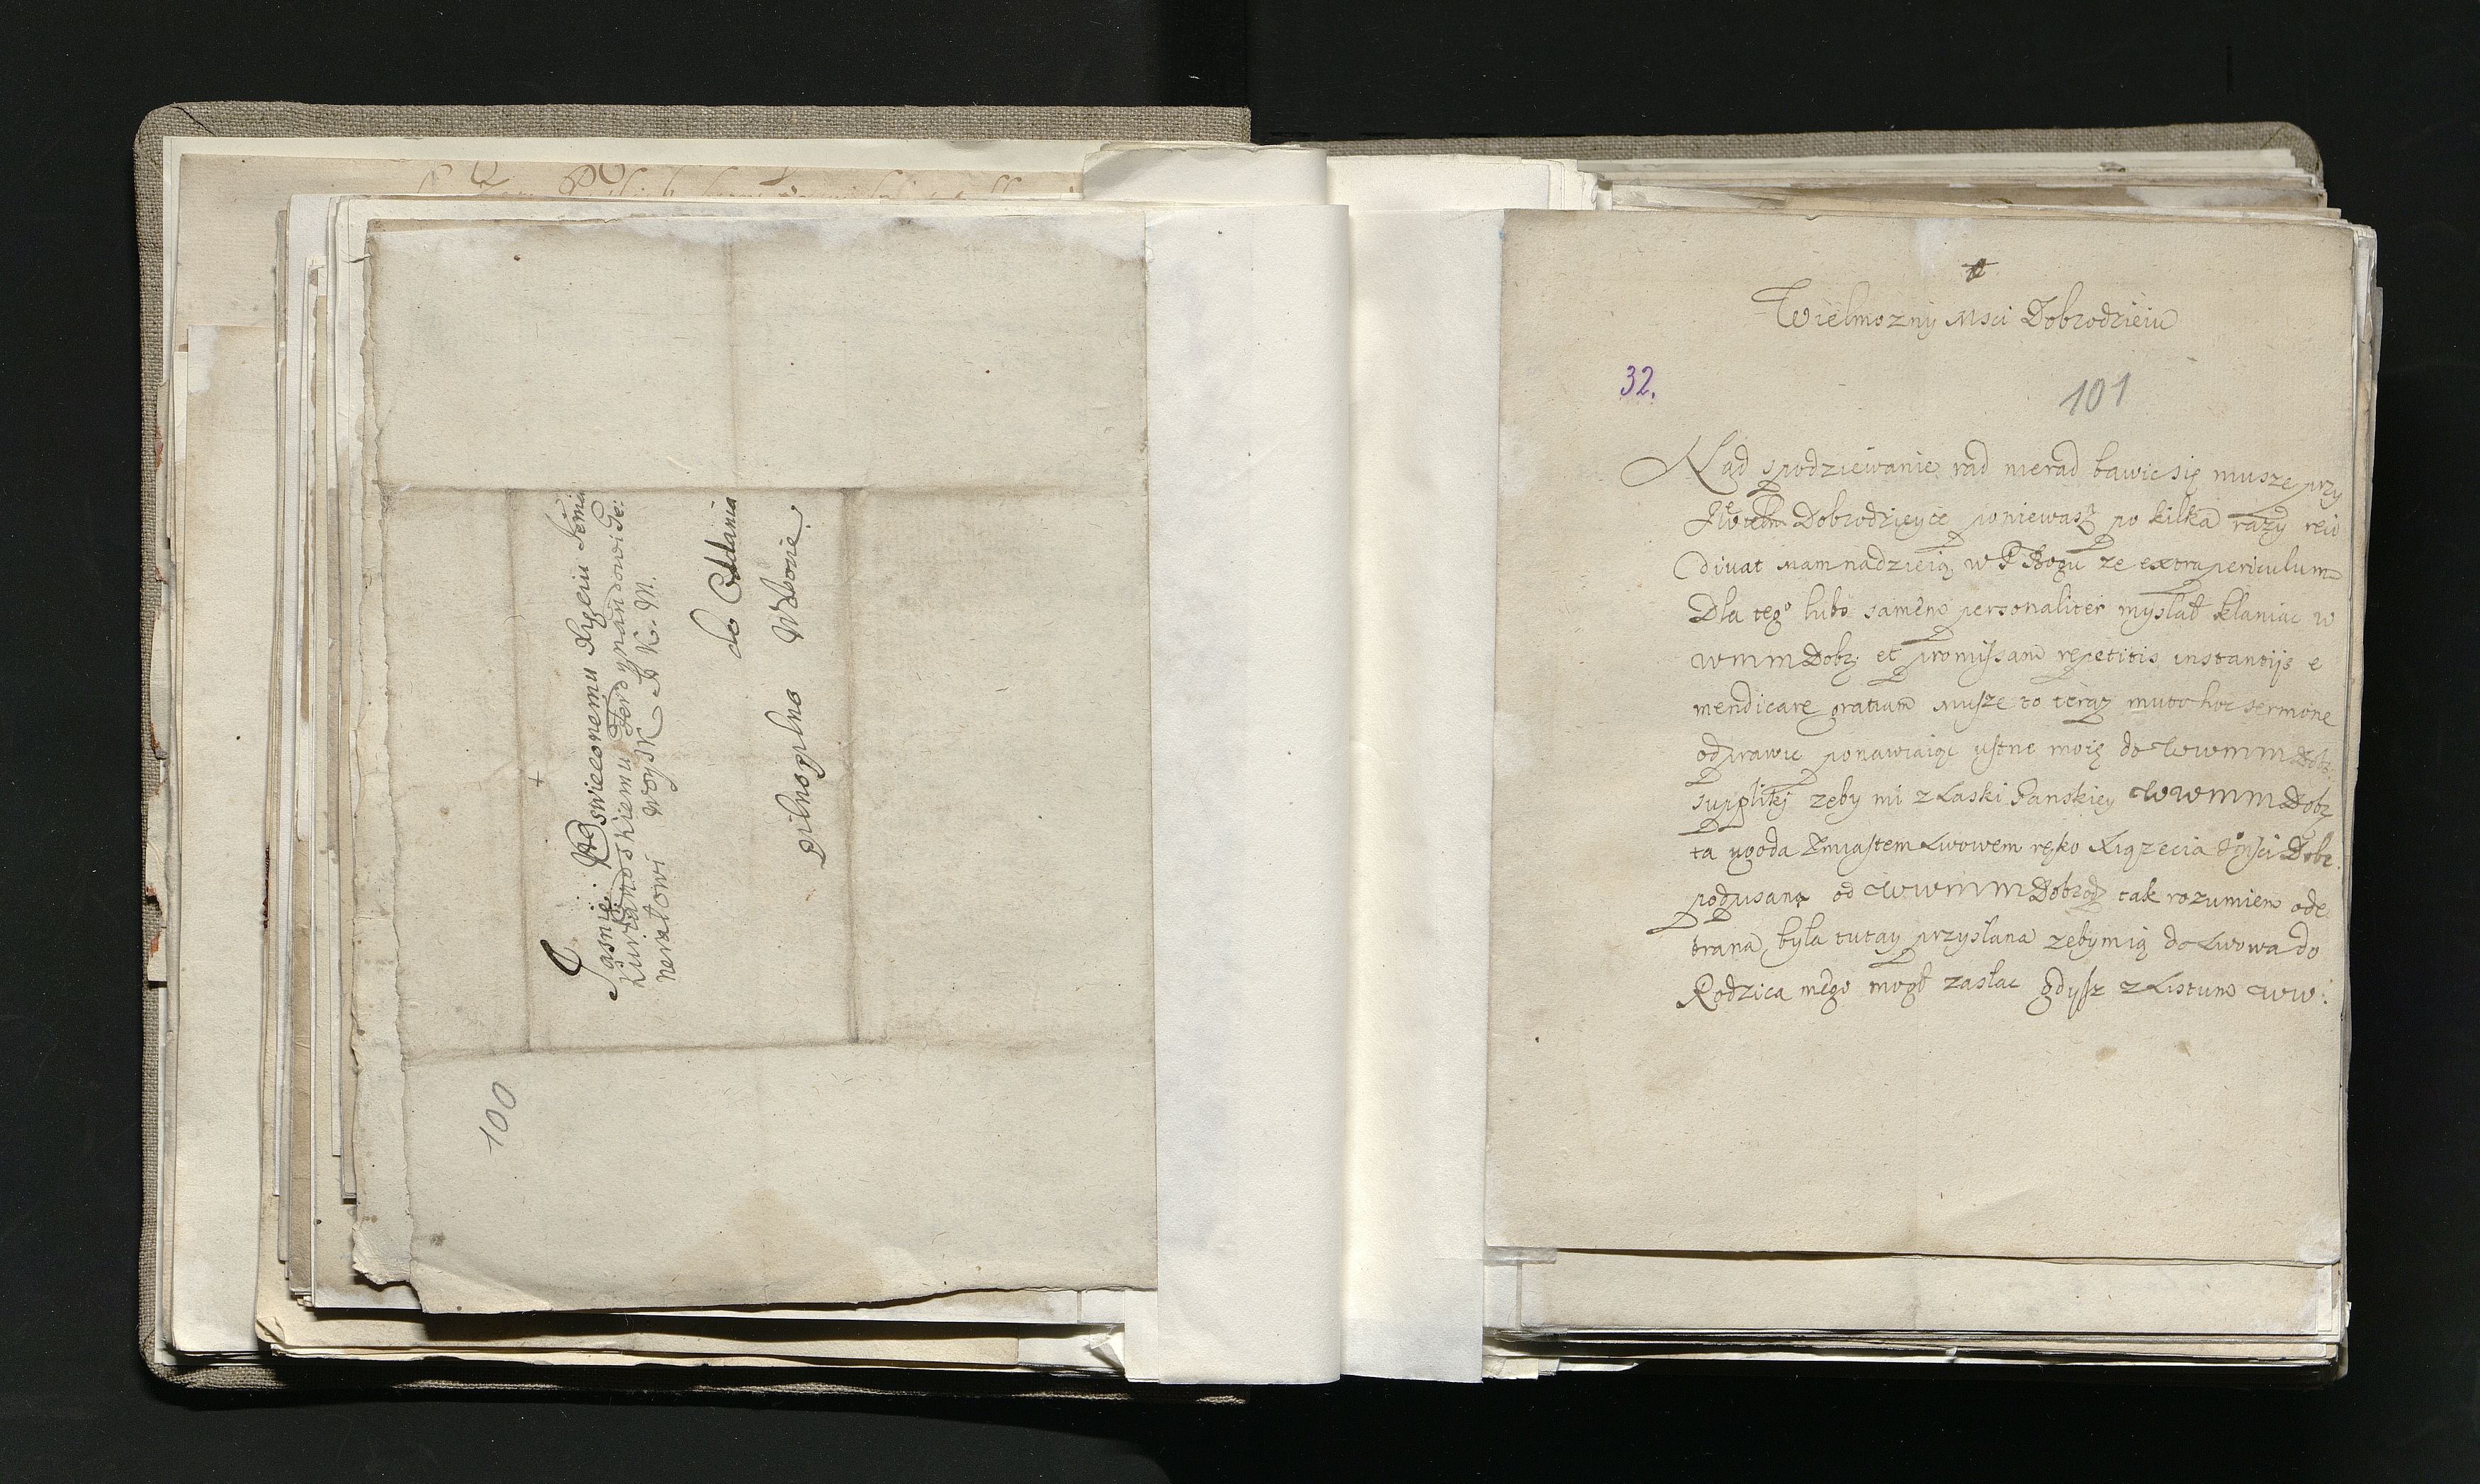 Jasnie Oswieconemu Xyzęciu Jemu
Kurlandskiemu Ferdynandowi Je:
nerałowi Woysk J K. M.
do Oddania
pilno pilno W Lwowie
100
Wielmozny Msci Dobrodzieiu
32.
101
Nad spodziewanie rad nierad bawic się musze przy
Dobrodzieyce poniewasz po kilka razy reci
divat mam nadzieię w P Bogu ze extra periculum
Dla tego lubo samem personaliter myslał kłaniac w
wmm Dobz. et promissam repetitis instantijs e
mendicare gratiam Musze to teraz muto hoc sermone
odprawic ponawiaiąc ustne moię do Wwmm Dob:
suppliką zeby mi z Łaski Panskiey WWmm Dobz
ta ugoda z miastem Lwowem ręko Xiązecia Jmsci Dobr
podpisana od Wwmm Dobrodz tak rozumiem ode
brana, była tutay przysłana zebym ią do Lwowa do
Rodzica mego mogł zasłac gdysz z Listum WW: